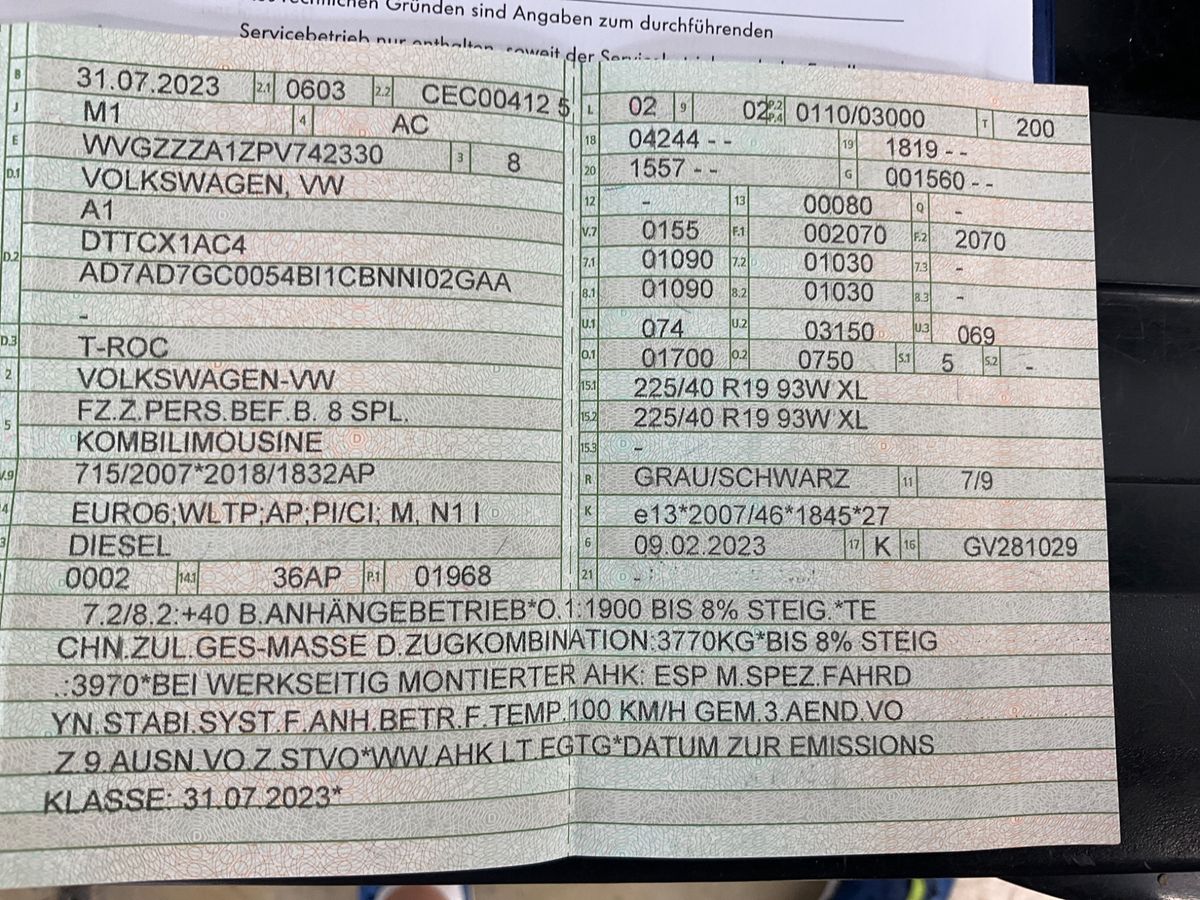 Gründen sind Angaben zum durchführenden
Servicebetrieb nur enthalten, soweit der
B 31.07.2023 2.1 0603 2.2 CEC00412 5
J M1 4 AC
E WVGZZZA1ZPV742330 3 8
D.1 VOLKSWAGEN, VW
A1
D.2 DTTCX1AC4
AD7AD7GC0054BI1CBNNI02GAA
-
D.3 T-ROC
2 VOLKSWAGEN-VW
5 FZ.Z.PERS.BEF.B. 8 SPL.
KOMBILIMOUSINE
V.9 715/2007*2018/1832AP
14 EURO6;WLTP;AP;PI/CI; M, N1 I
3 DIESEL
0002 14.1 36AP P.1 01968
L 02 9 02 P.2 P.4 0110/03000 T 200
18 04244 - - 19 1819 - -
20 1557 - - G 001560 - -
12 - 13 00080 Q -
V.7 0155 F.1 002070 F.2 2070
7.1 01090 7.2 01030 7.3 -
8.1 01090 8.2 01030 8.3 -
U.1 074 U.2 03150 U.3 069
O.1 01700 O.2 0750 S.1 5 S.2 -
15.1 225/40 R19 93W XL
15.2 225/40 R19 93W XL
15.3 -
R GRAU/SCHWARZ 11 7/9
K e13*2007/46*1845*27
6 09.02.2023 17 K 16 GV281029
21 -
7.2/8.2:+40 B.ANHÄNGEBETRIEB*O.1:1900 BIS 8% STEIG.*TE
CHN.ZUL.GES-MASSE D.ZUGKOMBINATION:3770KG*BIS 8% STEIG
.:3970*BEI WERKSEITIG MONTIERTER AHK: ESP M.SPEZ.FAHRD
YN.STABI.SYST.F.ANH.BETR.F.TEMP.100 KM/H GEM.3.AEND.VO
.Z.9.AUSN.VO.Z.STVO*WW.AHK LT.EGTG*DATUM ZUR EMISSIONS
KLASSE: 31.07.2023*